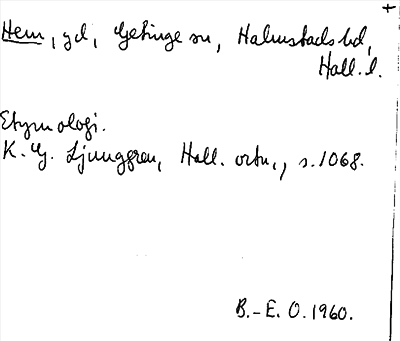 Hem, gd, Getinge sn, Halmstads hd,
Hall. l.
Etymologi.
K. G. Ljunggren, Hall. ortn., s. 1068.
B.-E. O. 1960.